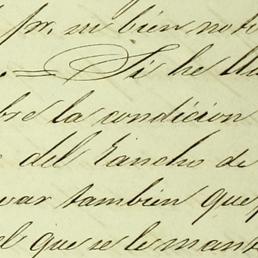 pr. mi bien not
Si he lla
bre la condicion
del Rancho de
var tambien que
el que se le man